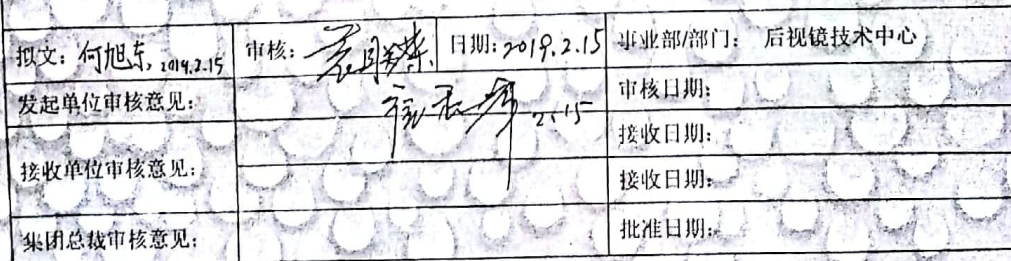 拟文：何旭东，2019.2.15 审核： 日期：2019.2.15 事业部/部门： 后视镜技术中心
发起单位审核意见： 2.15 审核日期：
接收单位审核意见： 接收日期：
接收日期：
集团总裁审核意见： 批准日期：